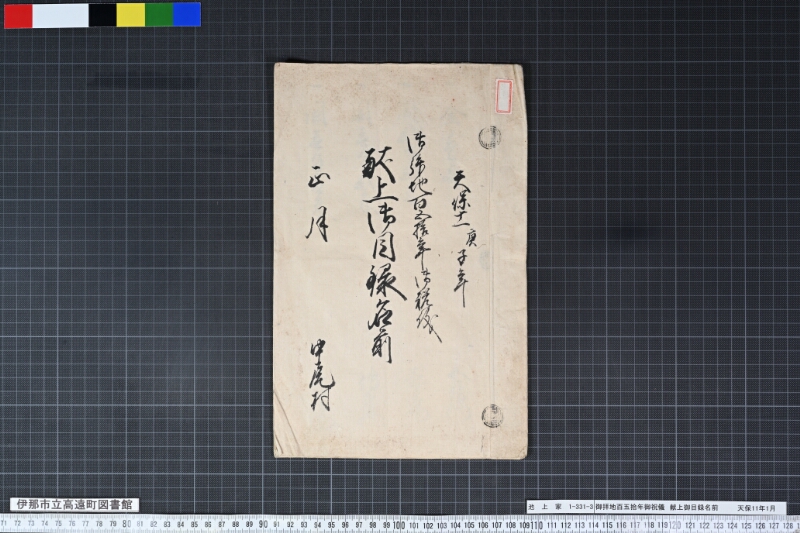 天保十一庚子年
御拝地百五拾年御祝儀
献上御目録名前
正月
中尾村
伊那市立高遠町図書館
池上家 1-331-3 御拝地百五拾年御祝儀 献上御目録名前 天保11年1月